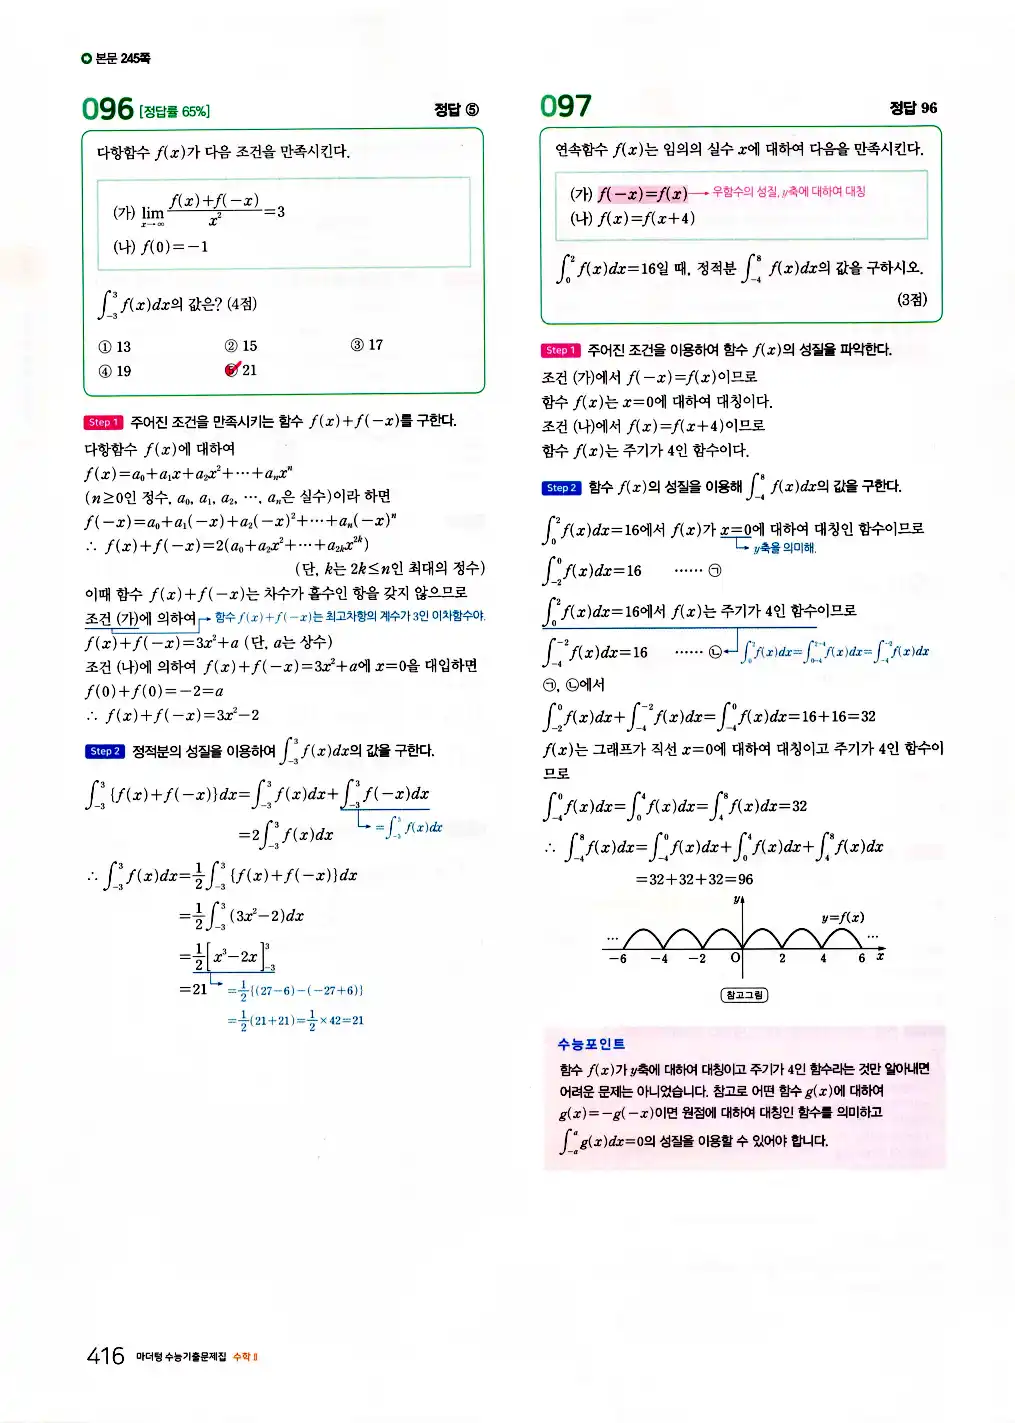 본문 245쪽
096 [정답률 65%] 정답 ⑤
다항함수 f(x)가 다음 조건을 만족시킨다.
(가) lim_{x→∞} {f(x)+f(−x)}/x²=3
(나) f(0)=−1
∫_{−3}^{3} f(x)dx의 값은? (4점)
① 13 ② 15 ③ 17
④ 19 ⑤ 21
Step 1 주어진 조건을 만족시키는 함수 f(x)+f(−x)를 구한다.
다항함수 f(x)에 대하여
f(x)=a₀+a₁x+a₂x²+⋯+aₙxⁿ
(n≥0인 정수, a₀, a₁, a₂, ⋯, aₙ은 실수)이라 하면
f(−x)=a₀+a₁(−x)+a₂(−x)²+⋯+aₙ(−x)ⁿ
∴ f(x)+f(−x)=2(a₀+a₂x²+⋯+a_{2k}x^{2k})
(단, k는 2k≤n인 최대의 정수)
이때 함수 f(x)+f(−x)는 차수가 홀수인 항을 갖지 않으므로
조건 (가)에 의하여 함수 f(x)+f(−x)는 최고차항의 계수가 3인 이차함수야.
f(x)+f(−x)=3x²+a (단, a는 상수)
조건 (나)에 의하여 f(x)+f(−x)=3x²+a에 x=0을 대입하면
f(0)+f(0)=−2=a
∴ f(x)+f(−x)=3x²−2
Step 2 정적분의 성질을 이용하여 ∫_{−3}^{3} f(x)dx의 값을 구한다.
∫_{−3}^{3} {f(x)+f(−x)}dx=∫_{−3}^{3} f(x)dx+∫_{−3}^{3} f(−x)dx
=2∫_{−3}^{3} f(x)dx =∫_{−3}^{3} f(x)dx
∴ ∫_{−3}^{3} f(x)dx=1/2∫_{−3}^{3} {f(x)+f(−x)}dx
=1/2∫_{−3}^{3} (3x²−2)dx
=1/2[x³−2x]_{−3}^{3}
=21 =1/2{(27−6)−(−27+6)}
=1/2(21+21)=1/2×42=21
097 정답 96
연속함수 f(x)는 임의의 실수 x에 대하여 다음을 만족시킨다.
(가) f(−x)=f(x)→ 우함수의 성질, y축에 대하여 대칭
(나) f(x)=f(x+4)
∫_{0}^{2} f(x)dx=16일 때, 정적분 ∫_{−4}^{8} f(x)dx의 값을 구하시오.
(3점)
Step 1 주어진 조건을 이용하여 함수 f(x)의 성질을 파악한다.
조건 (가)에서 f(−x)=f(x)이므로
함수 f(x)는 x=0에 대하여 대칭이다.
조건 (나)에서 f(x)=f(x+4)이므로
함수 f(x)는 주기가 4인 함수이다.
Step 2 함수 f(x)의 성질을 이용해 ∫_{−4}^{8} f(x)dx의 값을 구한다.
∫_{0}^{2} f(x)dx=16에서 f(x)가 x=0에 대하여 대칭인 함수이므로
y축을 의미해.
∫_{−2}^{0} f(x)dx=16 ⋯⋯ ㉠
∫_{0}^{2} f(x)dx=16에서 f(x)는 주기가 4인 함수이므로
∫_{−4}^{−2} f(x)dx=16 ⋯⋯ ㉡ ∫_{0}^{2} f(x)dx=∫_{0−4}^{2−4} f(x)dx=∫_{−4}^{−2} f(x)dx
㉠, ㉡에서
∫_{−2}^{0} f(x)dx+∫_{−4}^{−2} f(x)dx=∫_{−4}^{0} f(x)dx=16+16=32
f(x)는 그래프가 직선 x=0에 대하여 대칭이고 주기가 4인 함수이
므로
∫_{−4}^{0} f(x)dx=∫_{0}^{4} f(x)dx=∫_{4}^{8} f(x)dx=32
∴ ∫_{−4}^{8} f(x)dx=∫_{−4}^{0} f(x)dx+∫_{0}^{4} f(x)dx+∫_{4}^{8} f(x)dx
=32+32+32=96
y
y=f(x)
⋯ ⋯
−6 −4 −2 O 2 4 6 x
참고그림
수능포인트
함수 f(x)가 y축에 대하여 대칭이고 주기가 4인 함수라는 것만 알아내면
어려운 문제는 아니었습니다. 참고로 어떤 함수 g(x)에 대하여
g(x)=−g(−x)이면 원점에 대하여 대칭인 함수를 의미하고
∫_{−a}^{a} g(x)dx=0의 성질을 이용할 수 있어야 합니다.
416 마더텅 수능기출문제집 수학 Ⅱ